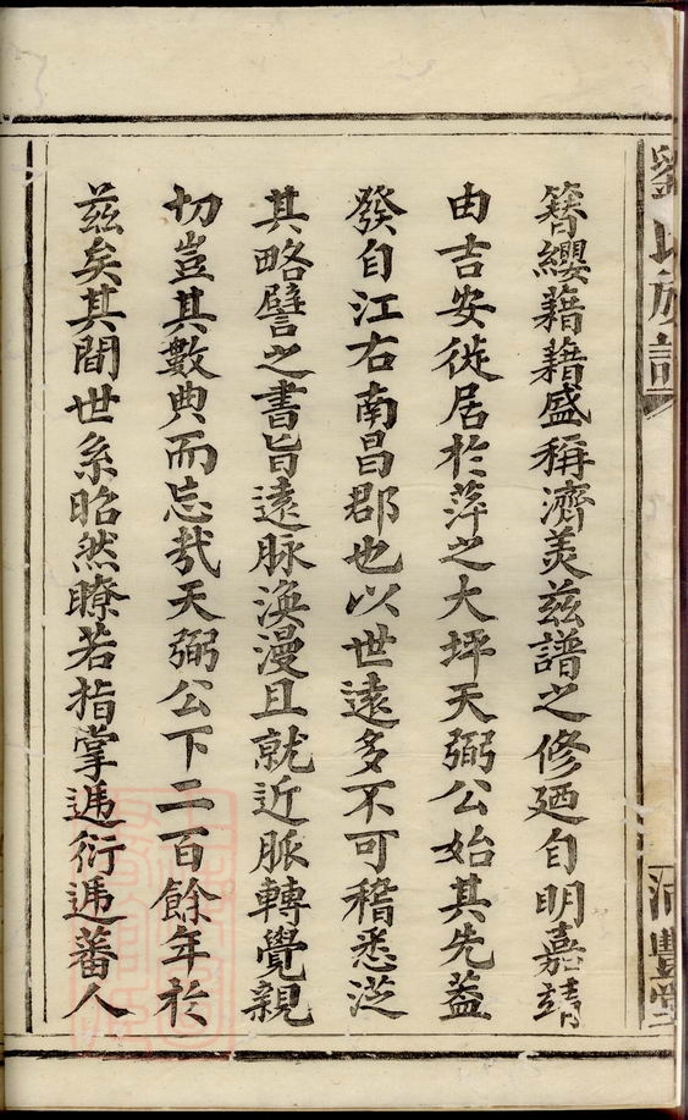 劉氏族譜
沛豐堂
簪纓藉藉盛稱濟美兹譜之修廼自明嘉靖
由吉安徙居於萍之大坪天弼公始其先葢
發自江右南昌郡也以世遠多不可稽悉從
其略譬之書旨遠脉渙漫且就近脈轉覺親
切豈其數典而忘哉天弼公下二百餘年於
兹矣其間世系昭然瞭若指掌遞衍遞蕃人